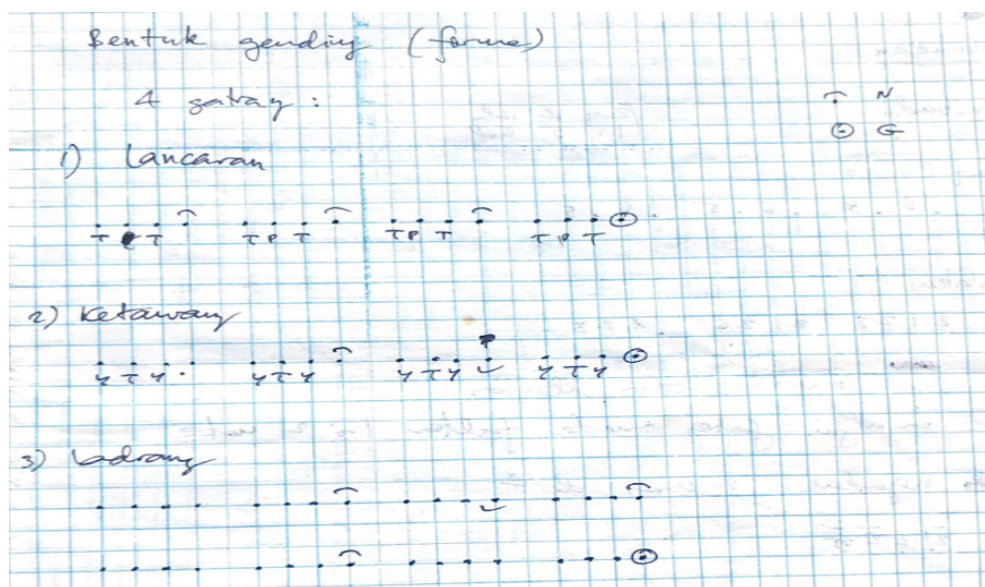 Bentuk gending (forme)
4 gatray :
N
G
1) Lancaran
T P T T P T T P T T P T
2) Ketawang
y T y . y T y y T y y T y
3) Ladrang